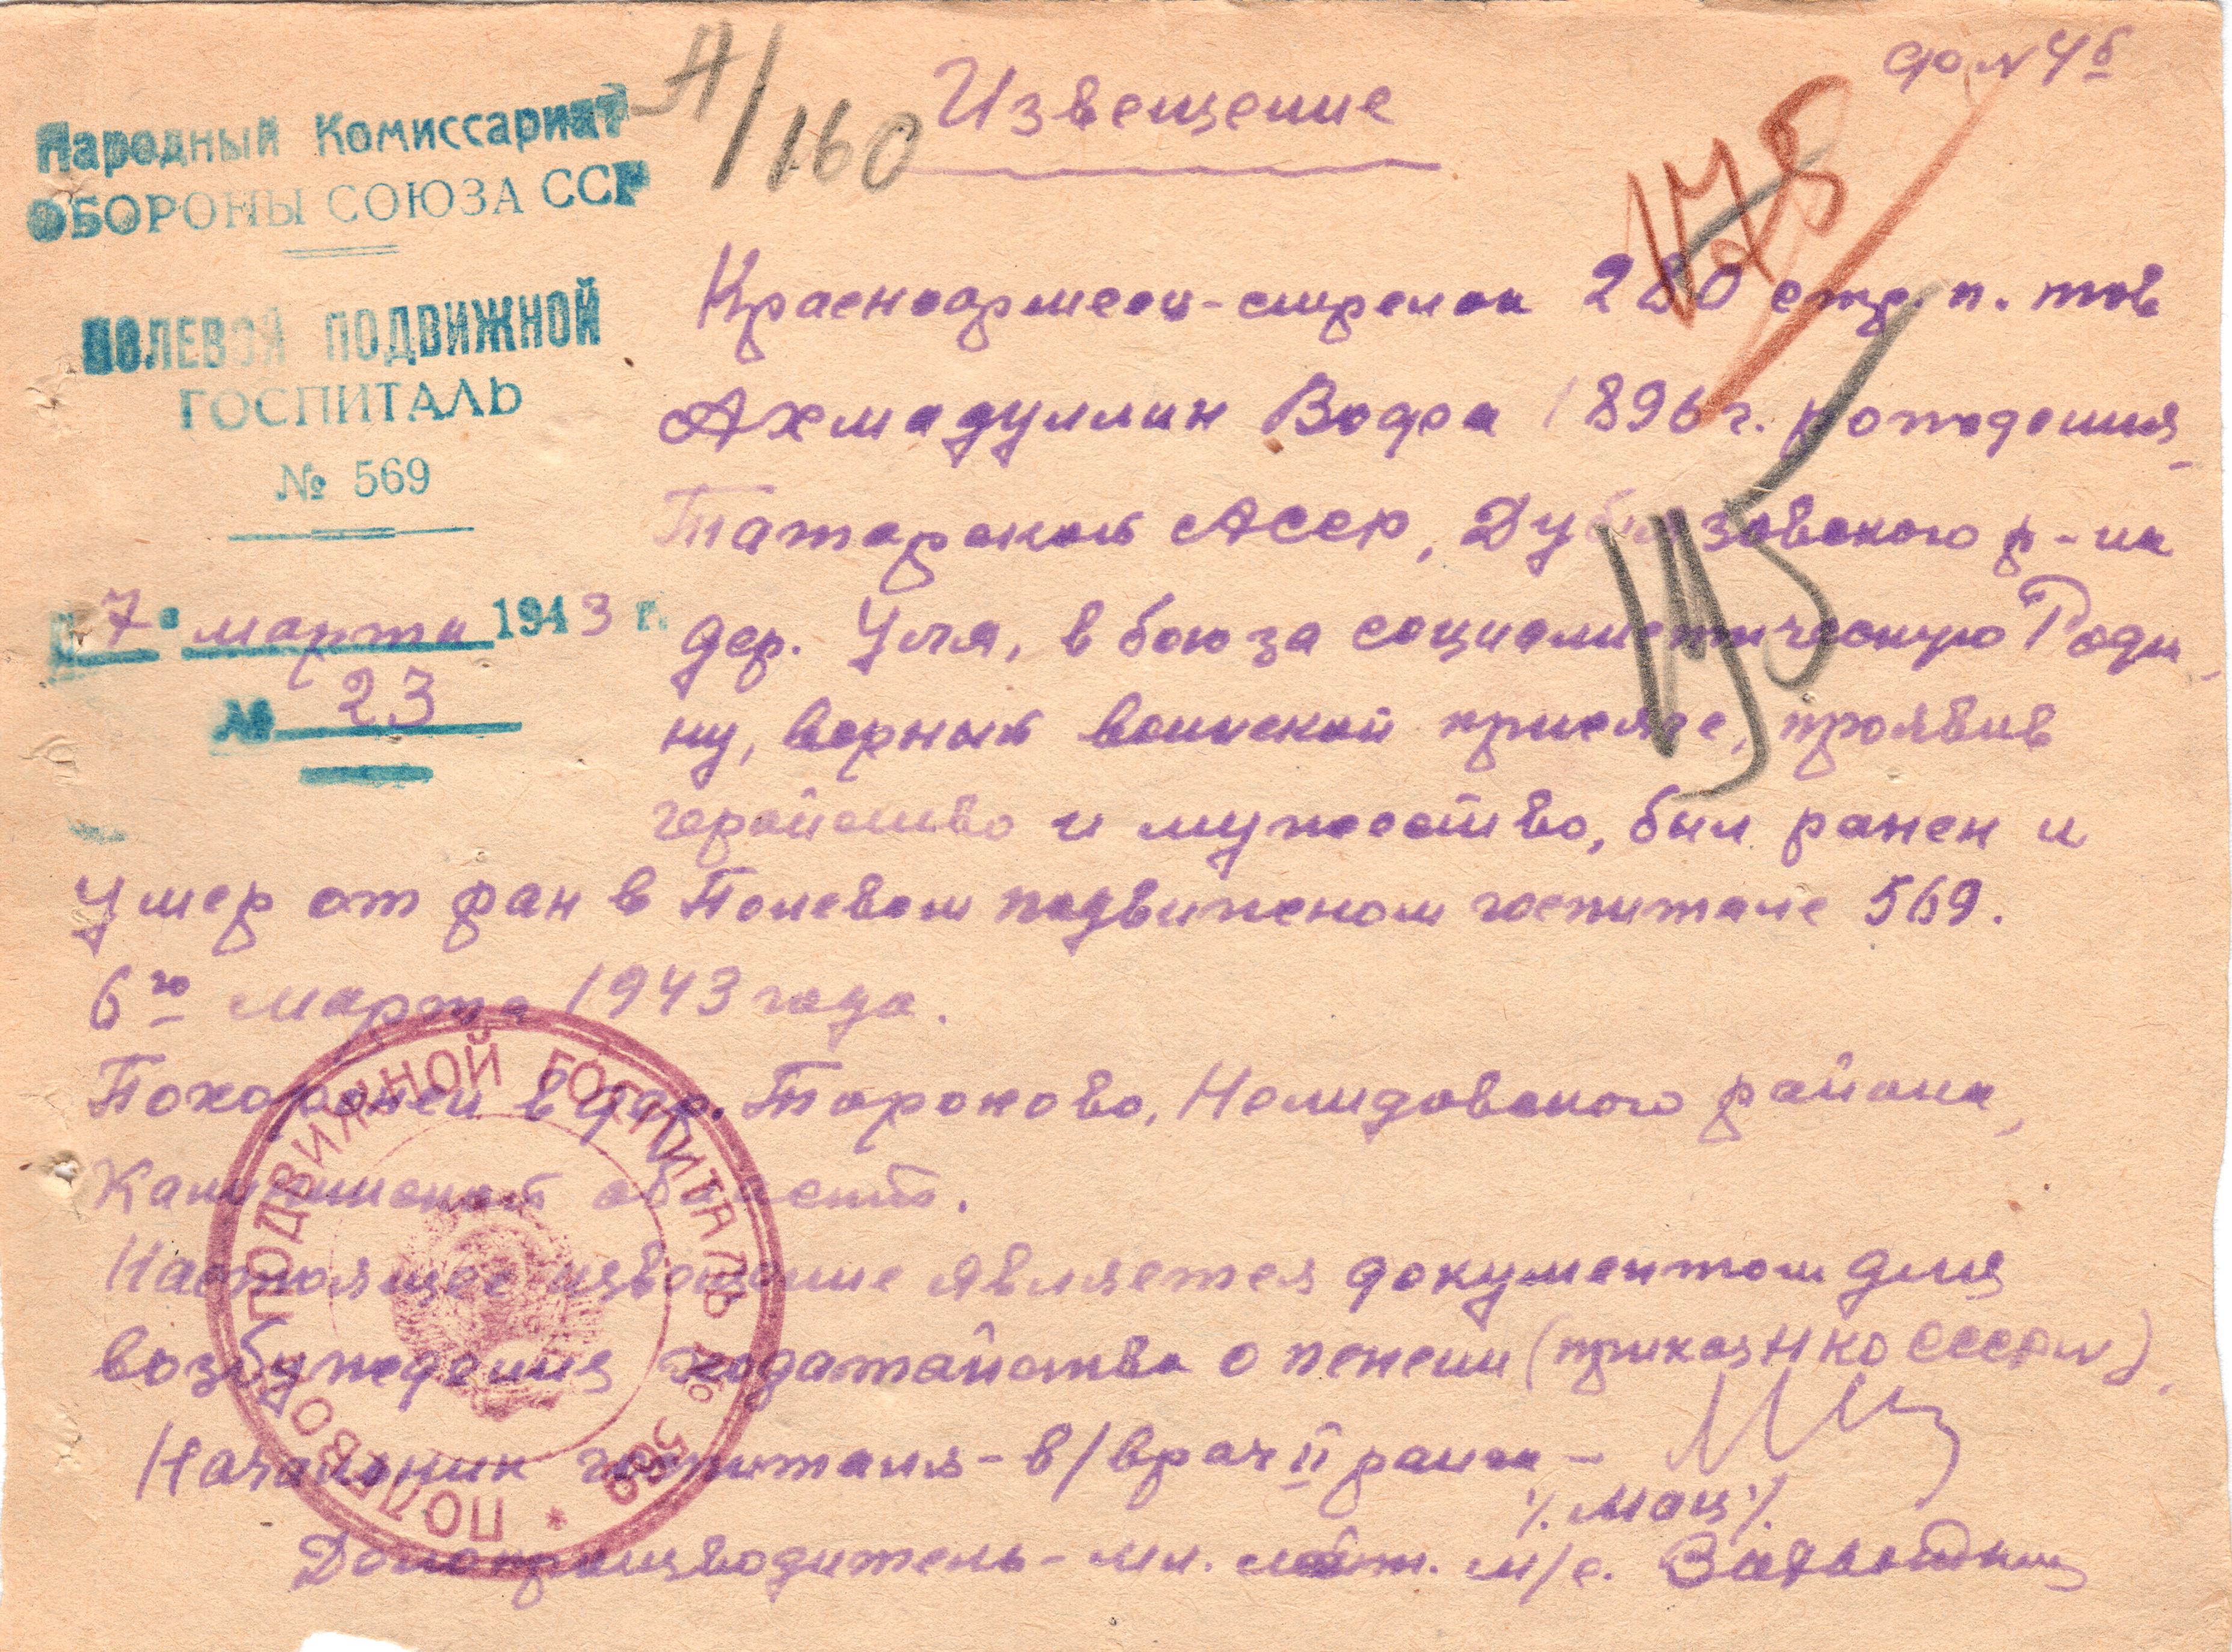 ф. № 4б
А/160
Извещение
178
Народный Комиссариат
ОБОРОНЫ СОЮЗА ССР
ПОЛЕВОЙ ПОДВИЖНОЙ
ГОСПИТАЛЬ
№ 569
7 марта 1943 г.
№ 23
Красноармеец-стрелок 280 стр. п. тов
Ахмадуллин Вафа 1896 г. рождения,
Татарской АССР, Дубъязовского р-на
дер. Уля, в бою за социалистическую Роди
ну, верный воинской присяге, проявив
геройство и мужество, был ранен и
умер от ран в Полевом подвижном госпитале 569.
6го марта 1943 года.
Похоронен в дер. Торопово, Нелидовского района,
Калининской области.
Настоящее извещение является документом для
возбуждения ходатайства о пенсии (приказ НКО СССР №).
Начальник госпиталя - в/врач II ранга -
/. Мац /.
Делопроизводитель - мл. лейт. м/с.
ПОЛЕВОЙ ПОДВИЖНОЙ ГОСПИТАЛЬ № 569 *